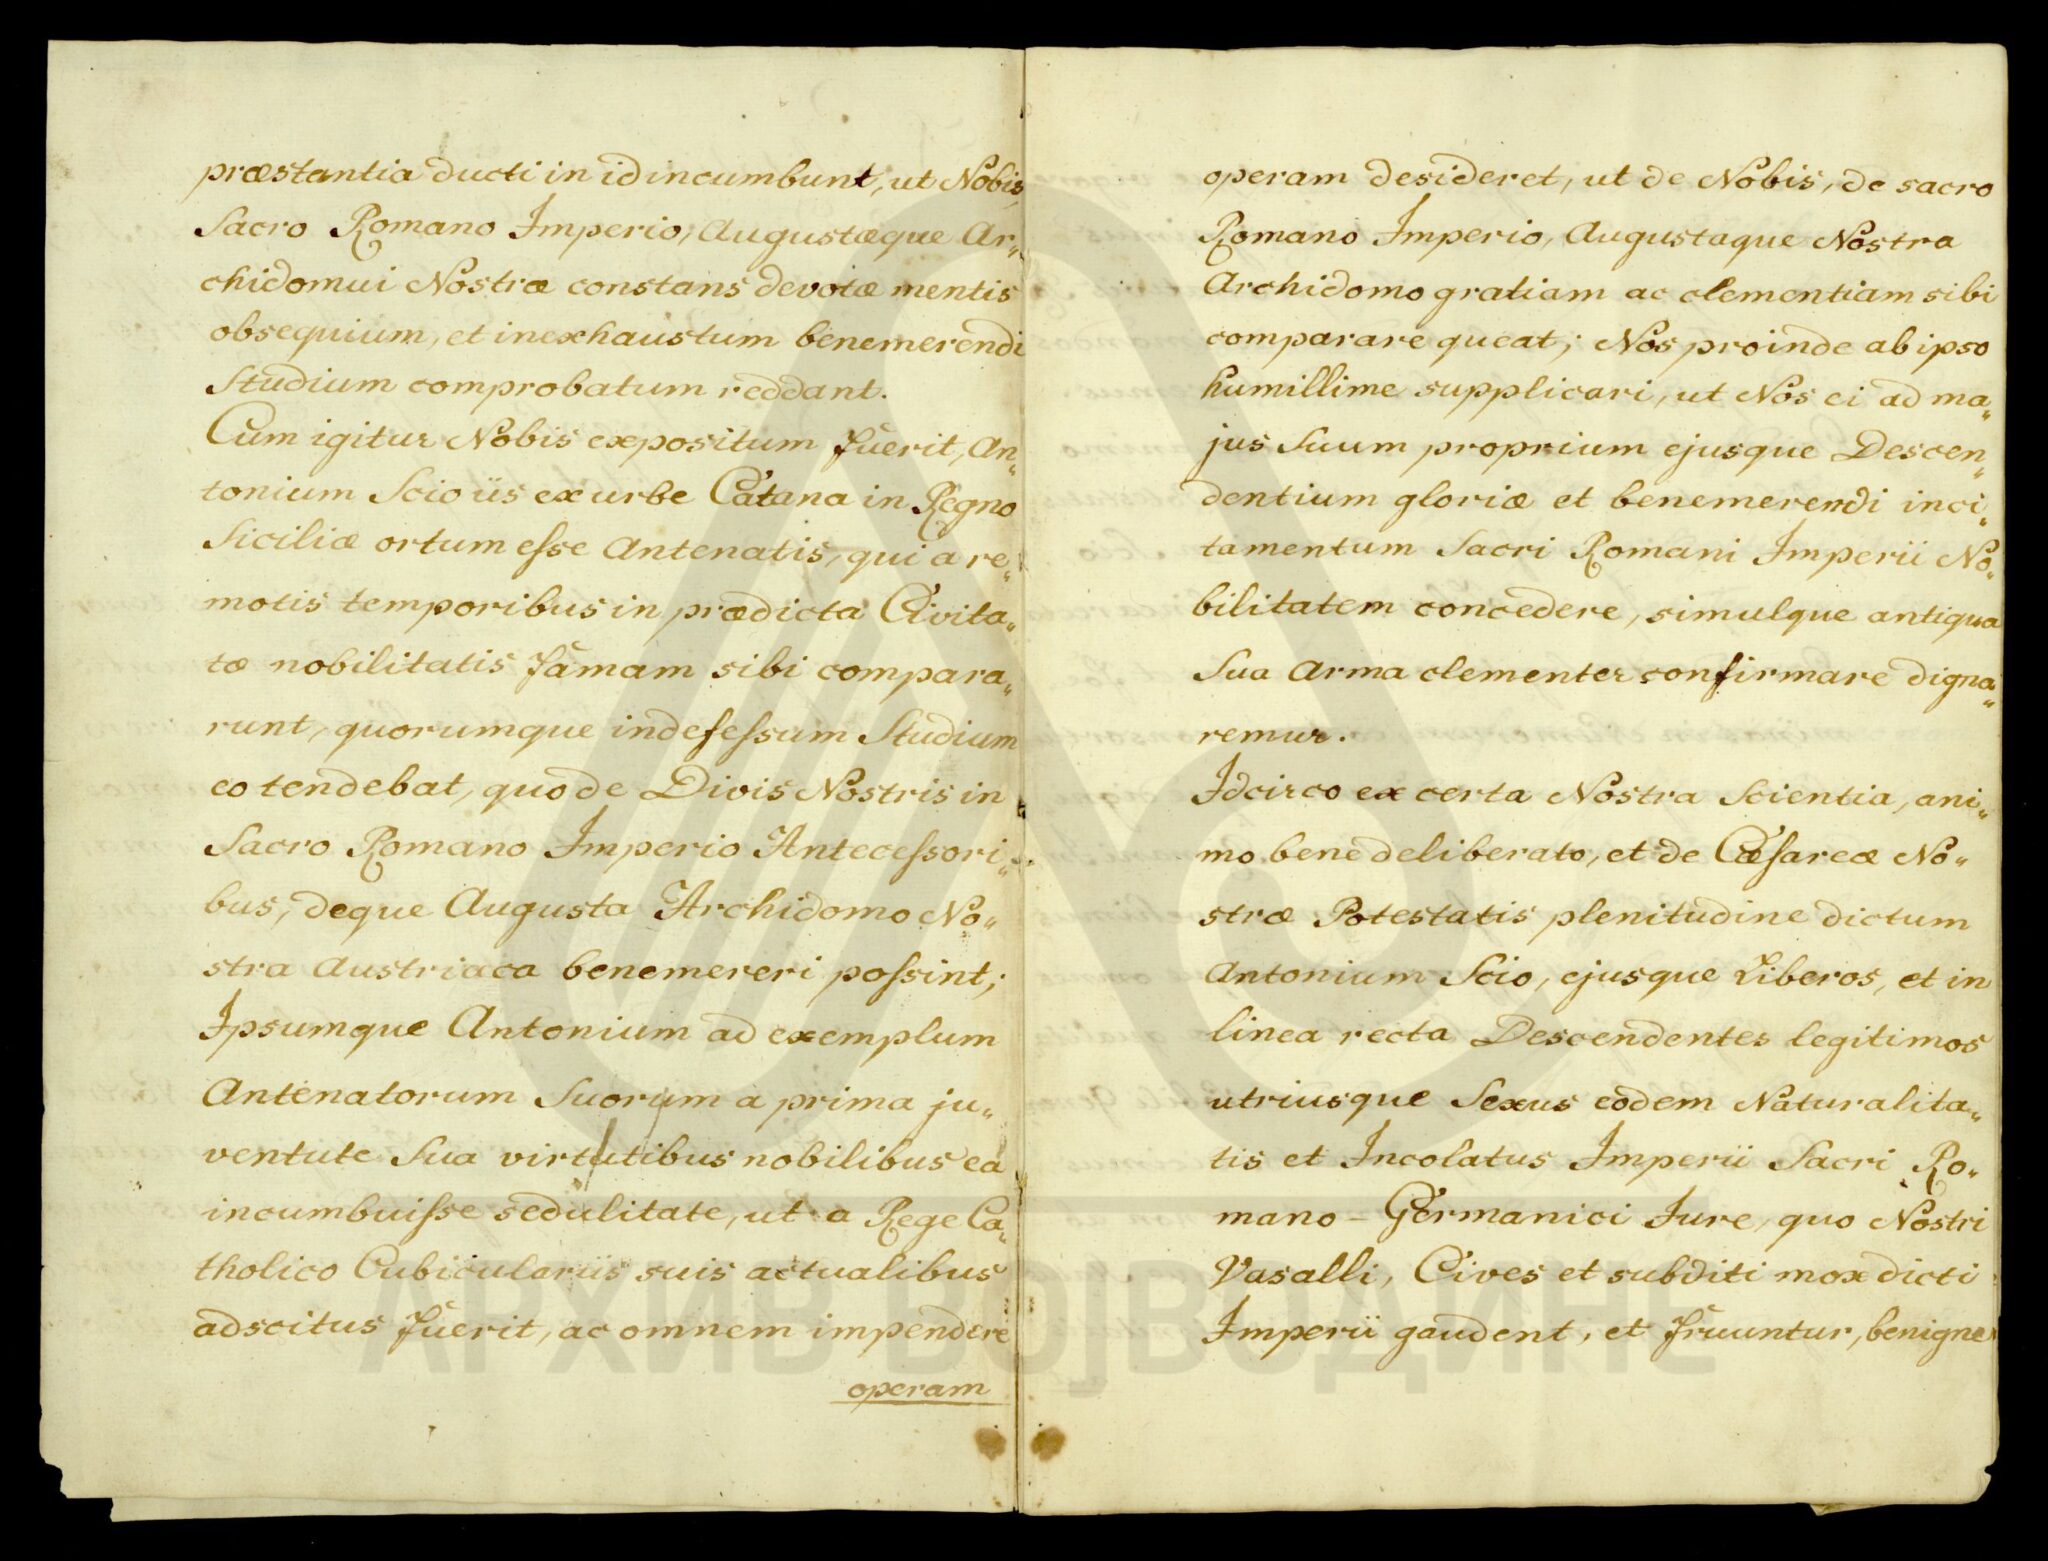 præstantia ducti in id incumbunt, ut Nobis,
Sacro Romano Imperio, Augustæque Ar„
chidomui Nostræ constans devotæ mentis
obsequium, et inexhaustum benemerendi
Studium comprobatum reddant.
Cum igitur Nobis expositum fuerit, An„
tonium Scio iis ex urbe Catana in Regno
Siciliæ ortum eſse Antenatis, qui a re„
motis temporibus in prædicta Civita„
tæ nobilitatis famam sibi compara„
runt, quorumque indefeſsum Studium
eo tendebat, quo de Divis Nostris in
Sacro Romano Imperio Anteceſsori„
bus, deque Augusta Archidomo No„
stra Austriaca benemereri poſsint;
Ipsumque Antonium ad exemplum
Antenatorum Suorum a prima ju„
ventute Sua virtutibus nobilibus ea
incumbuiſse sedulitate, ut a Rege Ca„
tholico Cubiculariis suis actualibus
adscitus fuerit, ac omnem impendere
operam
operam desideret, ut de Nobis, de sacro
Romano Imperio, Augustaque Nostra
Archidomo gratiam ac clementiam sibi
comparare queat; Nos proinde ab ipso
humillime supplicari, ut Nos ei ad ma„
jus Suum proprium ejusque Descen„
dentium gloriæ et benemerendi inci„
tamentum Sacri Romani Imperii No„
bilitatem concedere, simulque antiqua
Sua Arma clementer confirmare digna„
remur.
Idcirco ex certa Nostra Scientia, ani„
mo bene deliberato, et de Cæſareæ No„
stræ Potestatis plenitudine dictum
Antonium Scio, ejusque Liberos, et in
linea recta Descendentes legitimos
utriusque Sexus eodem Naturalita„
tis et Incolatus Imperii Sacri Ro„
mano-Germanici Jure, quo Nostri
Vasalli, Cives et subditi mox dicti
Imperii gaudent, et fruuntur, benigne
АРХИВ ВОЈВОДИНЕ